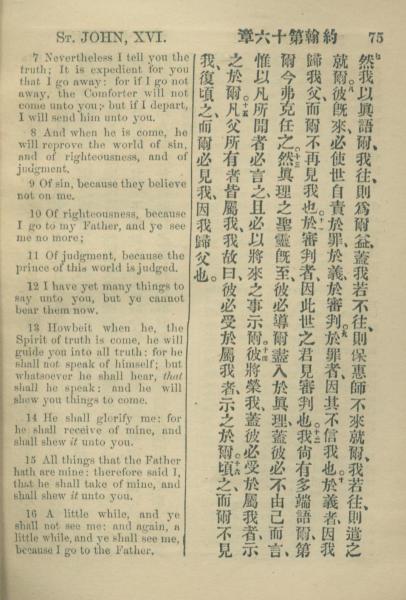 ST. JOHN, XVI.
約翰第十六章
75
7 Nevertheless I tell you the
truth; It is expedient for you
that I go away: for if I go not
away, the Comforter will not
come unto you; but if I depart,
I will send him unto you.
8 And when he is come, he
will reprove the world of sin,
and of righteousness, and of
judgment.
9 Of sin, because they believe
not on me.
10 Of righteousness, because
I go to my Father, and ye see
me no more;
11 Of judgment, because the
prince of this world is judged.
12 I have yet many things to
say unto you, but ye cannot
bear them now.
13 Howbeit when he, the
Spirit of truth is come, he will
guide you into all truth: for he
shall not speak of himself; but
whatsoever he shall hear, that
shall he speak: and he will
shew you things to come.
14 He shall glorify me: for
he shall receive of mine, and
shall shew it unto you.
15 All things that the Father
hath are mine: therefore said I,
that he shall take of mine, and
shall shew it unto you.
16 A little while, and ye
shall not see me: and again, a
little while, and ye shall see me,
because I go to the Father.
七然我以眞語爾、我往、則爲爾益、蓋我若不往、則保惠師不來就爾、我若往、則遣之
就爾、八彼旣來、必使世自責於罪、於義、於審判、九於罪者、因其不信我也、十於義者、因我
歸我父、而爾不再見我也、十一於審判者、因此世之君見審判也、十二我尙有多端語爾、第
爾今弗克任之、十三然眞理之聖靈旣至、彼必導爾盡入於眞理、蓋彼必不由己而言、
惟以凡所聞者必言之、且必以將來之事示爾、十四彼將榮我、蓋彼必受於屬我者、示
之於爾、十五凡父所有者皆屬我、我故曰、彼必受於屬我者、示之於爾、十六頃之、而爾不見
我、復頃之、而爾必見我、因我歸父也。